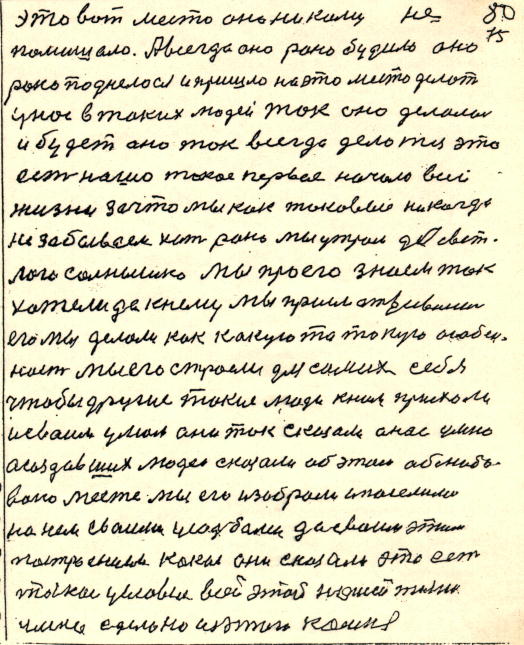 это вот место она никому не 80
помишало. А всегда оно рано будило оно 75
рано поднелося и пришло на это место делот
у нос в таких людей ток оно делалос
и будет оно ток всегда делотся это
ест нашо такое первое начало всей
жизни за что мы как таковые никогда
не забываем хот рано мы утром до свет.
лого солнышко мы про его знаем ток
хотели да к нему мы пришли
его мы делали как какую та такую особен.
ност мы его строели для самих себя
чтобы другие такие люди к ним приходили
и сваим умом они ток сказали о нас умно
а создавших людей сказали об этом
вано месте мы его избрали и поселили
на нем сваими да сваим этим
построением какое они сказали это ест
такое условия всей этой нашей жизни
сделано из этого